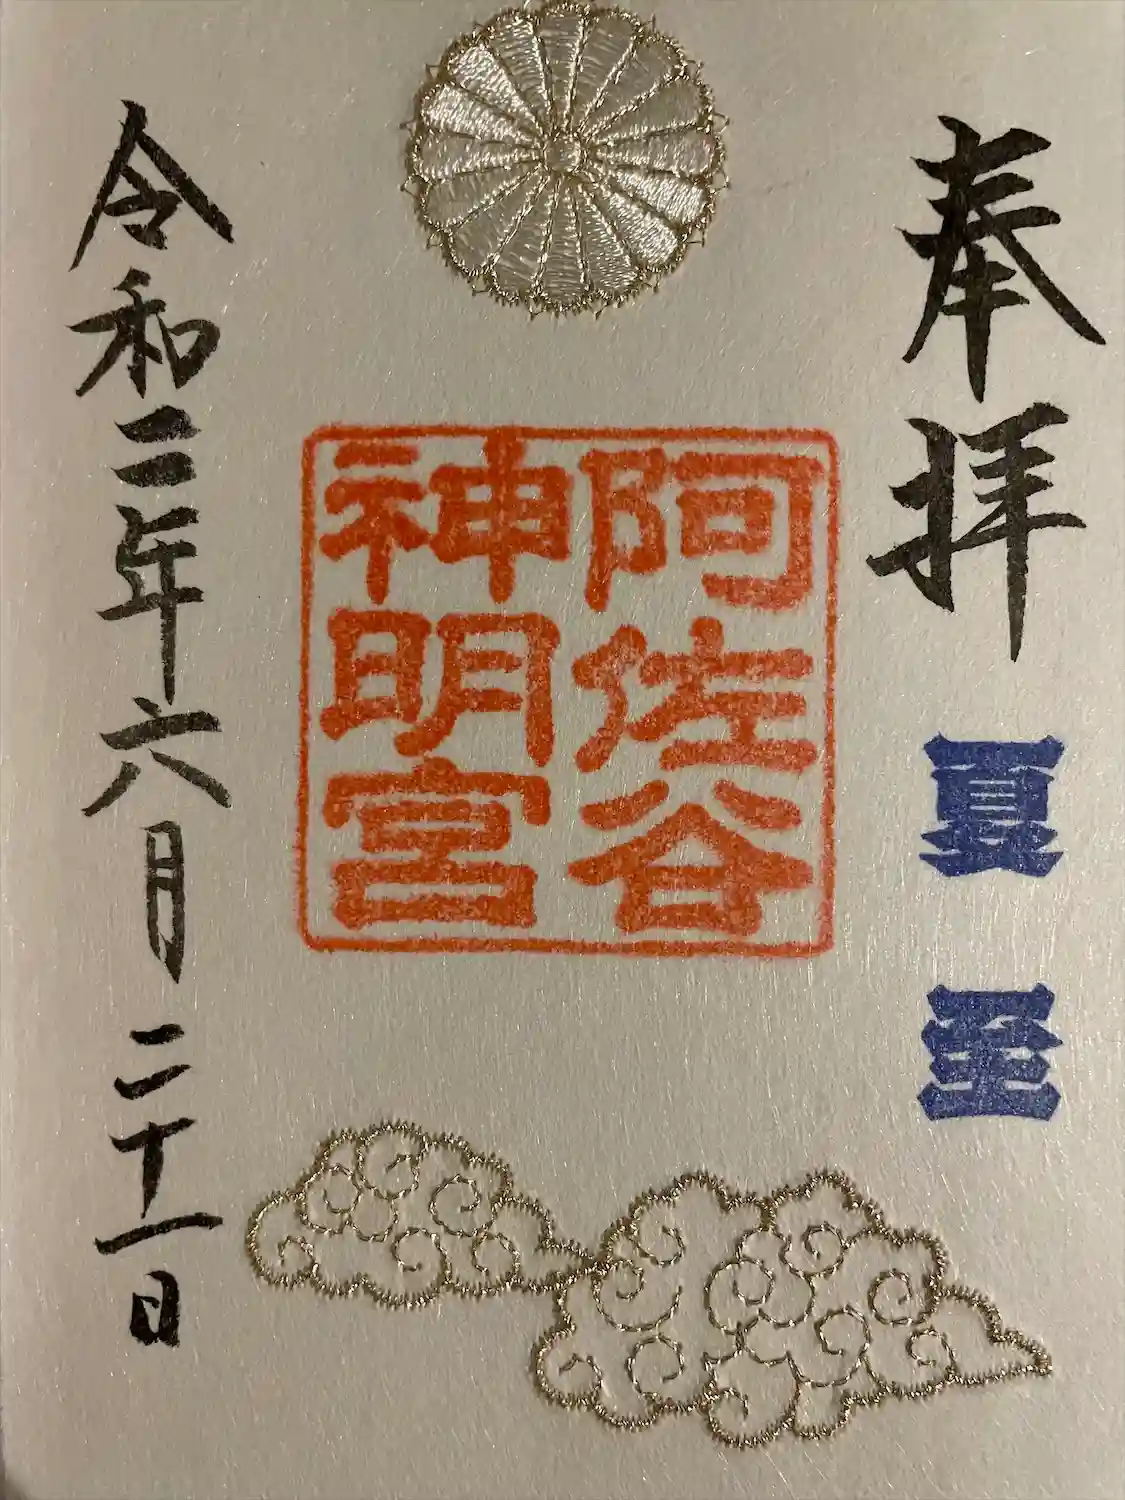 奉拝
夏至
阿佐谷
神明宮
令和三年六月二十一日